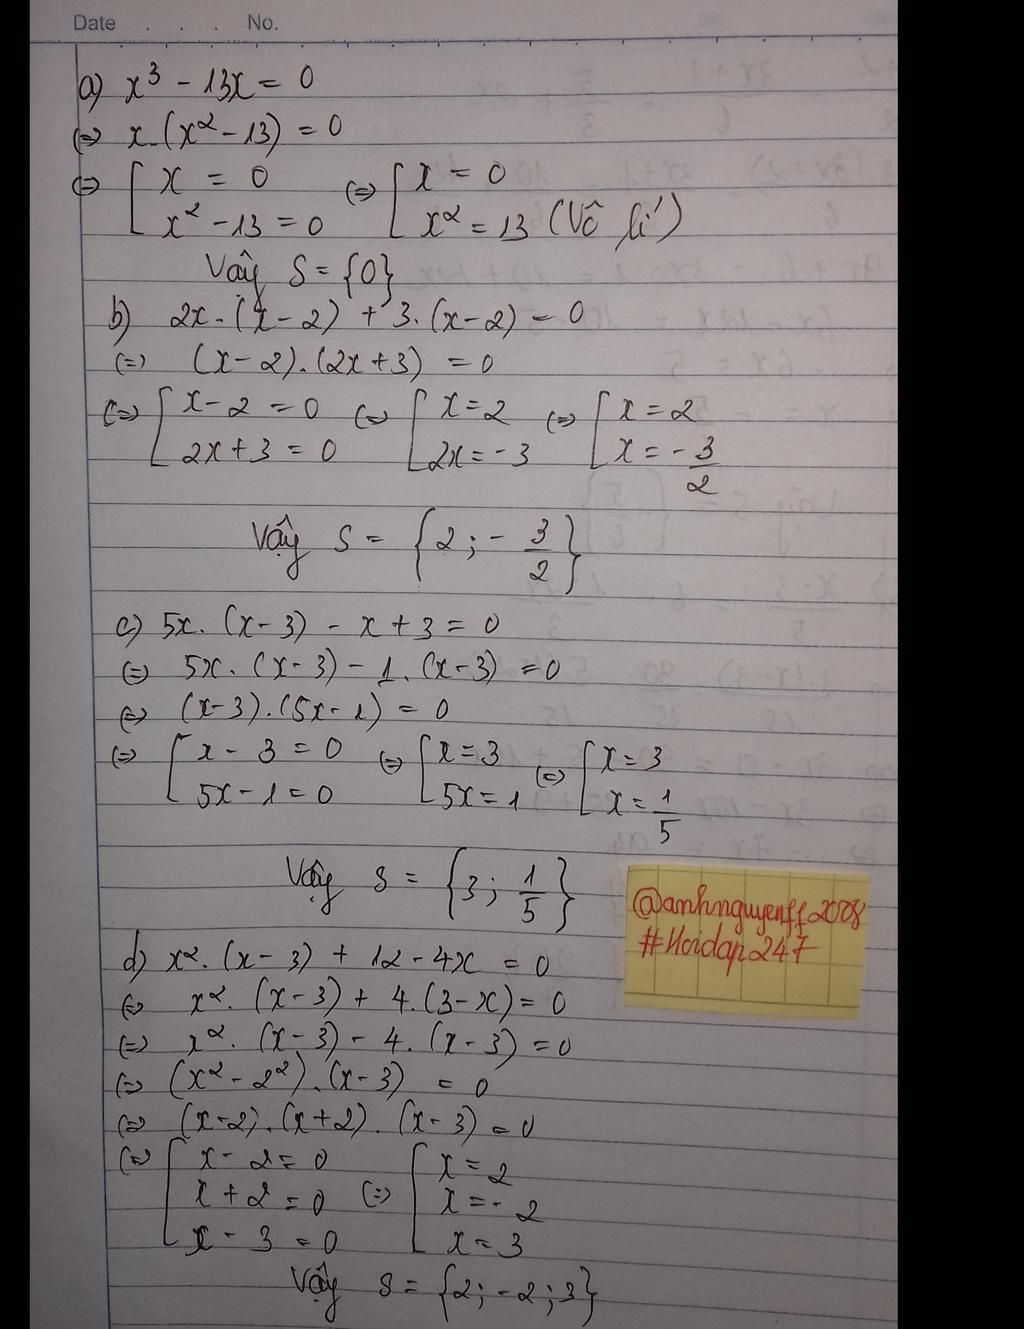 Date . . . No.
a) x³ - 13x = 0
(=) x.(x² - 13) = 0
(=) [ x = 0 (=) [ x = 0
x² - 13 = 0 x² = 13 (Vô lí)
Vậy S = {0}
b) 2x.(x - 2) + 3.(x - 2) = 0
(=) (x - 2).(2x + 3) = 0
(=) [ x - 2 = 0 (=) [ x = 2 (=) [ x = 2
2x + 3 = 0 2x = -3 x = -3/2
Vậy S = {2; -3/2}
c) 5x.(x - 3) - x + 3 = 0
(=) 5x.(x - 3) - 1.(x - 3) = 0
(=) (x - 3).(5x - 1) = 0
(=) [ x - 3 = 0 (=) [ x = 3 (=) [ x = 3
5x - 1 = 0 5x = 1 x = 1/5
Vậy S = {3; 1/5}
@anhnguyenff2008
#Hoidap247
d) x².(x - 3) + 12 - 4x = 0
(=) x².(x - 3) + 4.(3 - x) = 0
(=) x².(x - 3) - 4.(x - 3) = 0
(=) (x² - 2²).(x - 3) = 0
(=) (x - 2).(x + 2).(x - 3) = 0
(=) [ x - 2 = 0 [ x = 2
x + 2 = 0 (=) x = -2
x - 3 = 0 x = 3
Vậy S = {2; -2; 3}